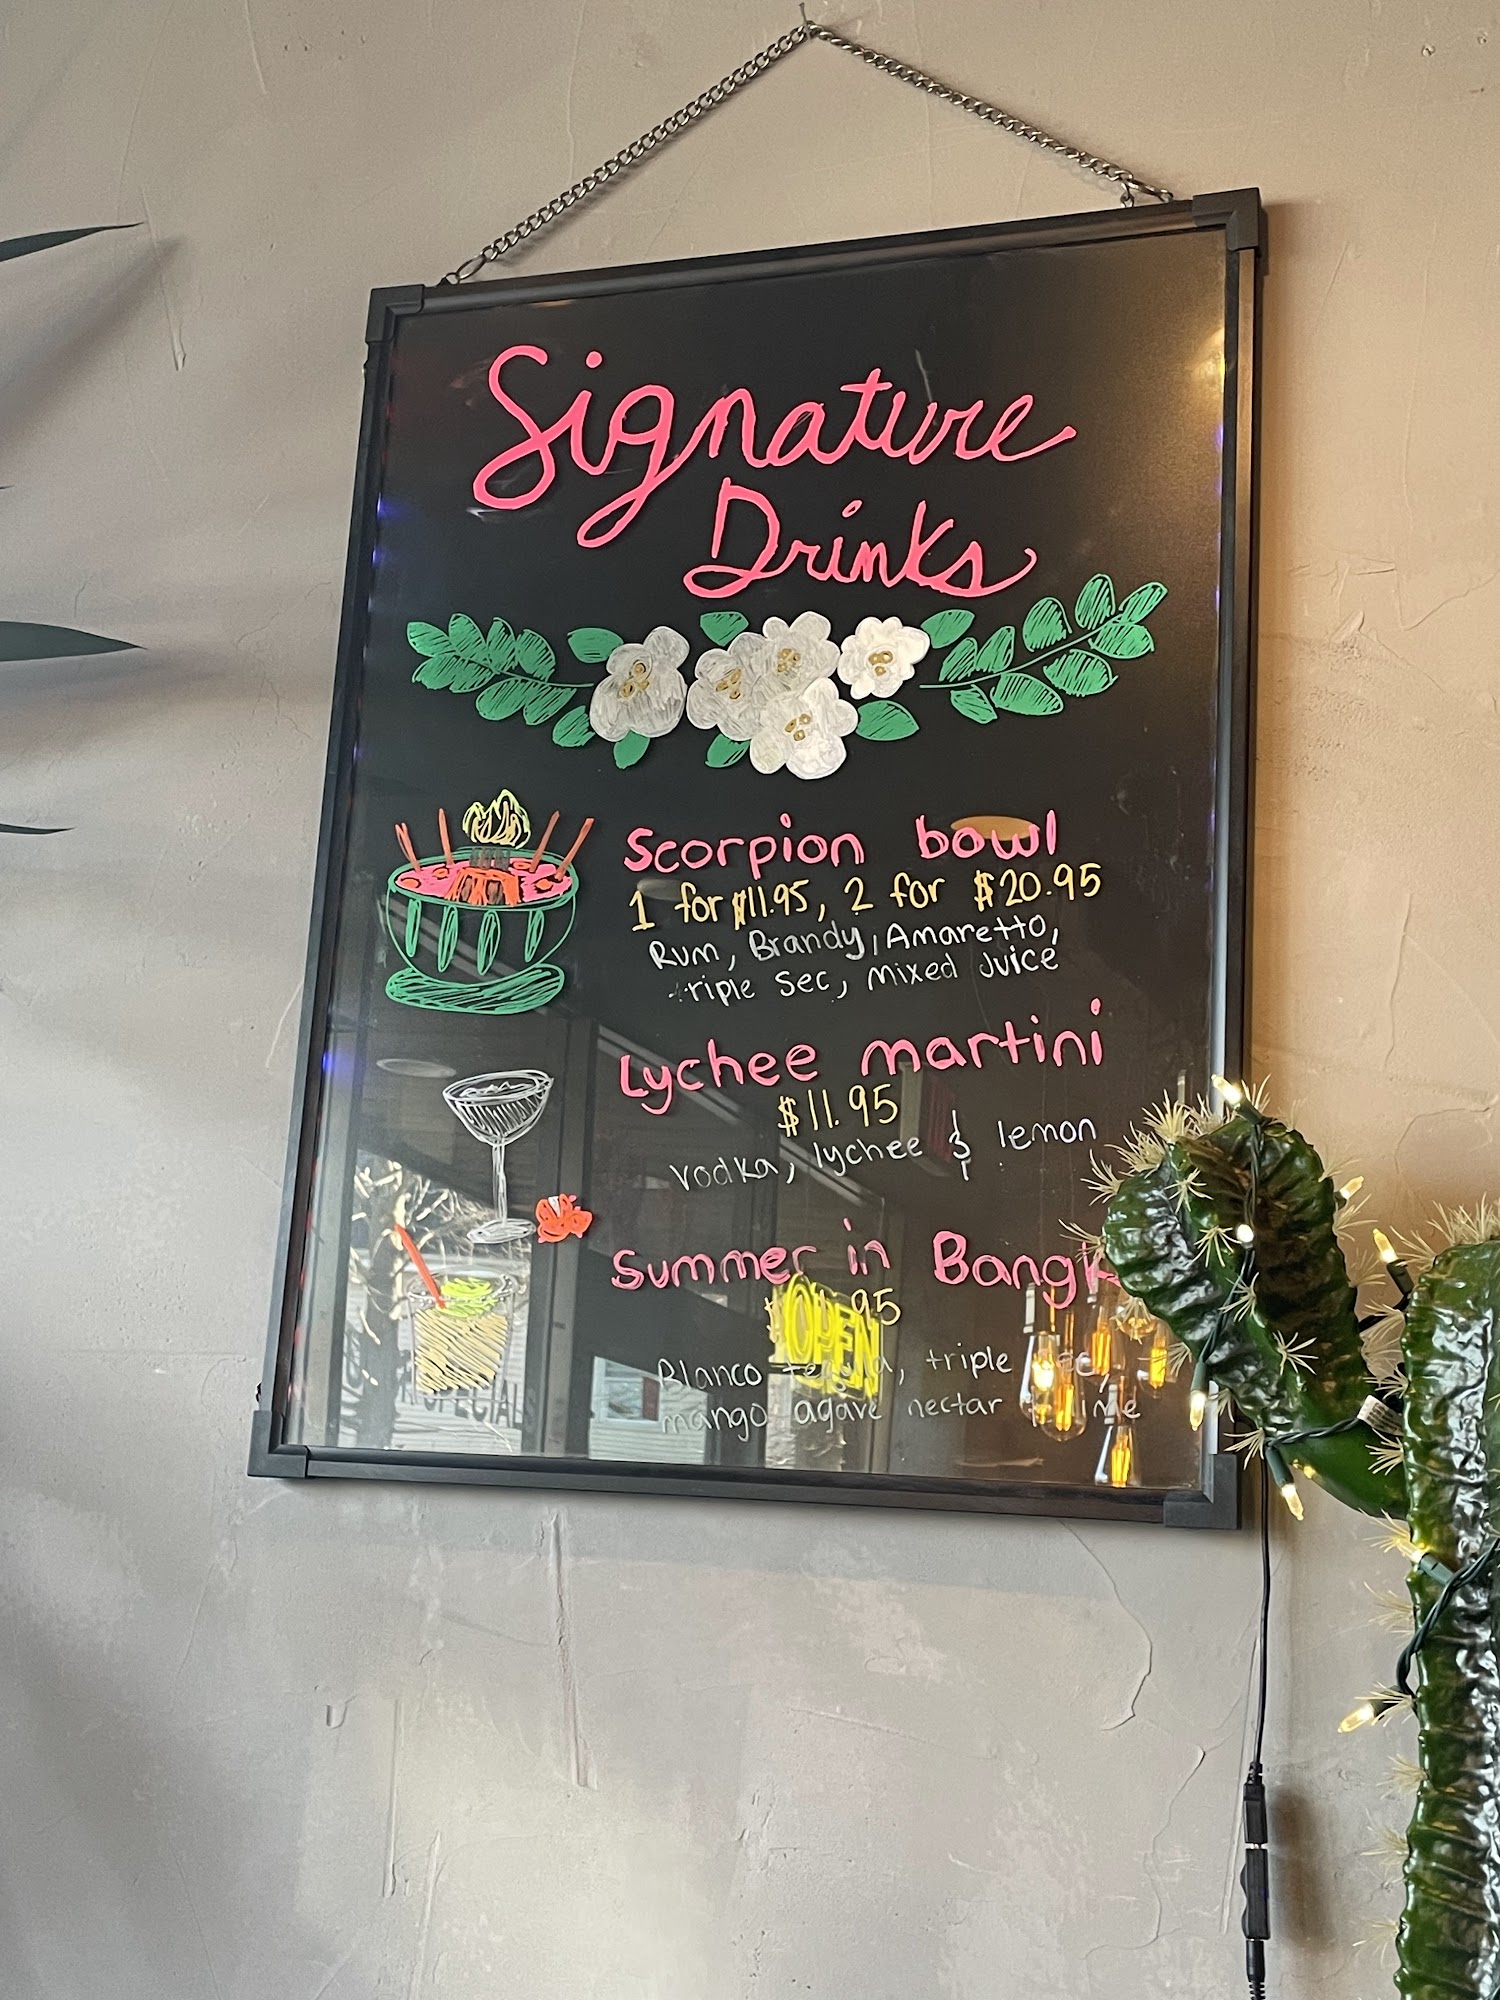 Signature
Drinks
Scorpion bowl
1 for $11.95, 2 for $20.95
Rum, Brandy, Amaretto,
triple sec, mixed Juice
Lychee martini
$11.95
vodka, lychee & lemon
Summer in Bangk
95
OPEN
Blanco tequila, triple sec,
mango agave nectar lime
SPECIALS